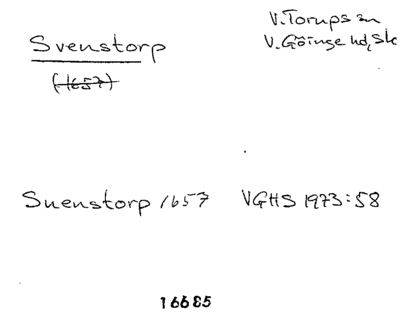 Svenstorp
(1657)
V. Torups sn
V. Göinge hd, Sk
Suenstorp 1657 VGHS 1973:58
16685